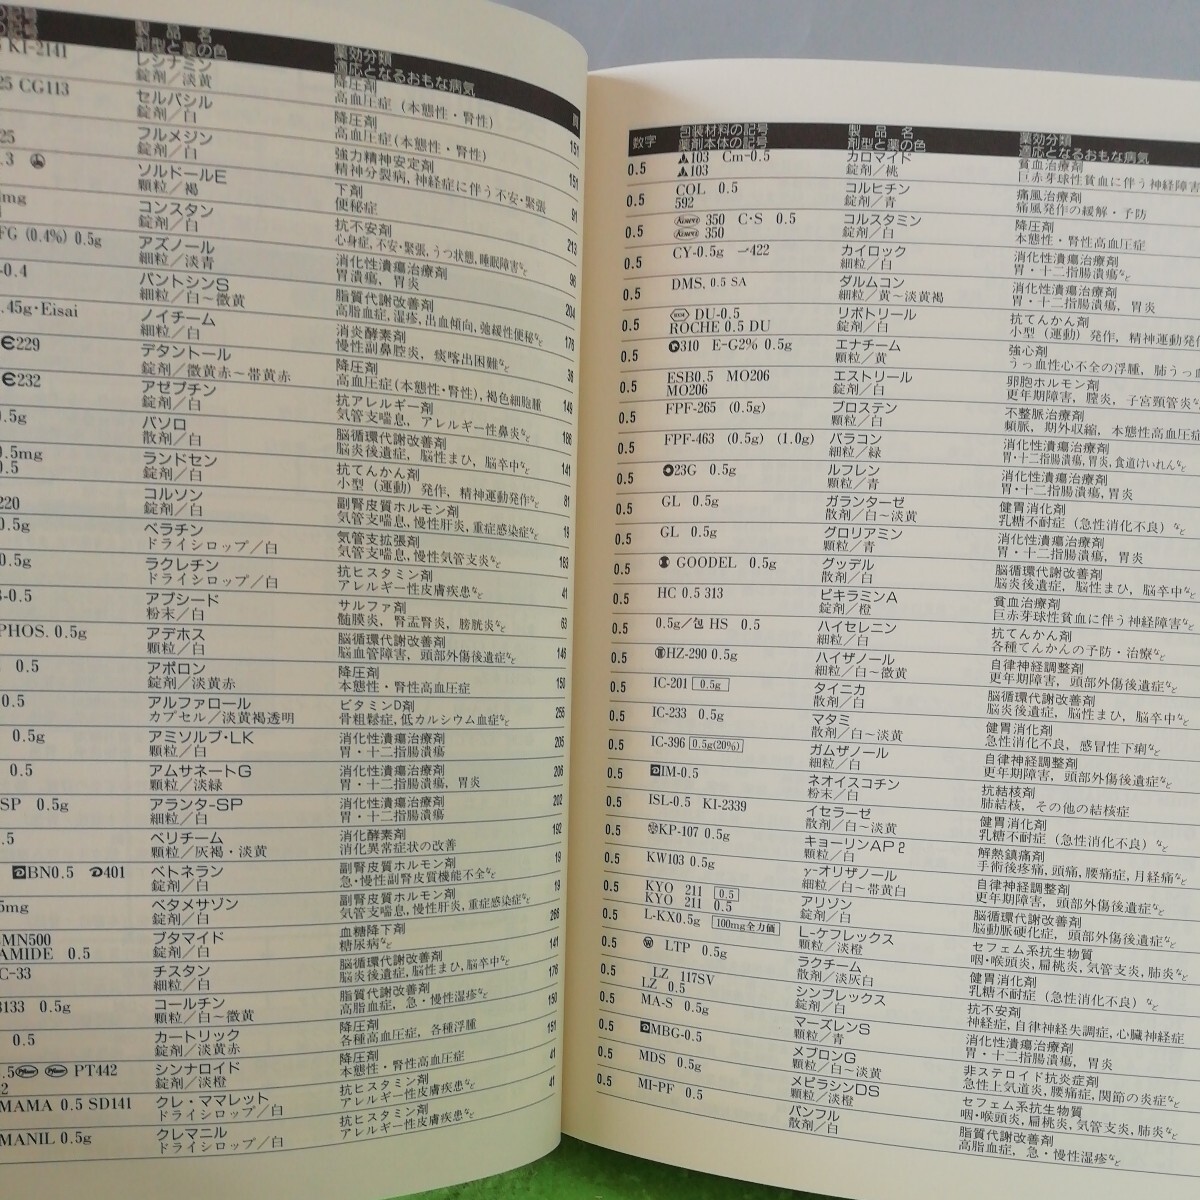 の記号
の記号
製品名
剤型と薬の色
薬効分類
適応となるおもな病気
頁
KI-2141
レシナミン
錠剤／淡黄
降圧剤
高血圧症（本態性・腎性）
151
25 CG113
セルパシル
錠剤／白
降圧剤
高血圧症(本態性・腎性)
151
25
フルメジン
錠剤／白
強力精神安定剤
精神分裂病,神経症に伴う不安・緊張
91
.3
ソルドールE
顆粒／褐
下剤
便秘症
213
mg
コンスタン
錠剤／白
抗不安剤
心身症,不安・緊張,うつ状態,睡眠障害など
96
FG (0.4%) 0.5g
アズノール
細粒／淡青
消化性潰瘍治療剤
胃潰瘍，胃炎
204
-0.4
パントシンS
細粒／白～微黄
脂質代謝改善剤
高脂血症,湿疹,出血傾向,弛緩性便秘など
179
.45g・Eisai
ノイチーム
細粒／白
消炎酵素剤
慢性副鼻腔炎，痰喀出困難など
36
229
デタントール
錠剤／微黄赤～帯黄赤
降圧剤
高血圧症(本態性・腎性),褐色細胞腫
149
232
アゼプチン
錠剤／白
抗アレルギー剤
気管支喘息，アレルギー性鼻炎など
186
.5g
バソロ
散剤／白
脳循環代謝改善剤
脳炎後遺症，脳性まひ，脳卒中など
141
0.5mg
0.5
ランドセン
錠剤／白
抗てんかん剤
小型（運動）発作，精神運動発作など
81
220
コルソン
錠剤／白
副腎皮質ホルモン剤
気管支喘息,慢性肝炎,重症感染症など
19
0.5g
ベラチン
ドライシロップ／白
気管支拡張剤
気管支喘息,慢性気管支炎など
183
0.5g
ラクレチン
ドライシロップ／白
抗ヒスタミン剤
アレルギー性皮膚疾患など
41
-0.5
アプシード
粉末／白
サルファ剤
髄膜炎，腎盂腎炎，膀胱炎など
63
PHOS. 0.5g
アデホス
顆粒／白
脳循環代謝改善剤
脳血管障害，頭部外傷後遺症など
148
0.5
アポロン
錠剤／淡黄赤
降圧剤
本態性・腎性高血圧症
158
0.5
アルファロール
カプセル／淡黄褐透明
ビタミンD剤
骨粗鬆症,低カルシウム血症など
255
0.5g
アミソルブ・LK
顆粒／白
消化性潰瘍治療剤
胃・十二指腸潰瘍
205
0.5
アムサネートG
顆粒／淡緑
消化性潰瘍治療剤
胃・十二指腸潰瘍，胃炎
206
SP 0.5g
アランタ-SP
細粒／白
消化性潰瘍治療剤
胃・十二指腸潰瘍
202
.5
ベリチーム
顆粒／灰褐・淡黄
消化酵素剤
消化異常症状の改善
192
BN0.5 401
ベトネラン
錠剤／白
副腎皮質ホルモン剤
急・慢性副腎皮質機能不全など
19
5mg
ベタメサゾン
錠剤／白
副腎皮質ホルモン剤
気管支喘息,慢性肝炎,重症感染症など
19
MN500
AMIDE 0.5
ブタマイド
錠剤／白
血糖降下剤
糖尿病など
266
C-33
チスタン
細粒／白
脳循環代謝改善剤
脳炎後遺症,脳性まひ,脳卒中など
141
3133 0.5g
コールチン
顆粒／白～微黄
脂質代謝改善剤
高脂血症，急・慢性湿疹など
176
0.5
カートリック
錠剤／淡黄赤
降圧剤
各種高血圧症，各種浮腫
150
.5 PT442
シンナロイド
錠剤／淡橙
降圧剤
本態性・腎性高血圧症
151
MAMA 0.5 SD141
クレ・ママレット
ドライシロップ／白
抗ヒスタミン剤
アレルギー性皮膚疾患など
41
MANIL 0.5g
クレマニル
ドライシロップ／白
抗ヒスタミン剤
アレルギー性皮膚疾患など
41
数字
包装材料の記号
薬剤本体の記号
製品名
剤型と薬の色
薬効分類
適応となるおもな病気
0.5
103 Cm-0.5
103
カロマイド
錠剤／桃
貧血治療剤
巨赤芽球性貧血に伴う神経障害
0.5
COL 0.5
592
コルヒチン
錠剤／青
痛風治療剤
痛風発作の緩解・予防
0.5
Kowa 350 C・S 0.5
Kowa 350
コルスタミン
錠剤／白
降圧剤
本態性・腎性高血圧症
0.5
CY-0.5g 422
カイロック
細粒／白
消化性潰瘍治療剤
胃・十二指腸潰瘍など
0.5
DMS. 0.5 SA
ダルムコン
細粒／黄～淡黄褐
消化性潰瘍治療剤
胃・十二指腸潰瘍，胃炎
0.5
DU-0.5
ROCHE 0.5 DU
リボトリール
錠剤／白
抗てんかん剤
小型（運動）発作，精神運動発
0.5
310 E-G2% 0.5g
エナチーム
顆粒／黄
強心剤
うっ血性心不全の浮腫，肺うっ血
0.5
ESB0.5 MO206
MO206
エストリール
錠剤／白
卵胞ホルモン剤
更年期障害，膣炎，子宮頸管炎な
0.5
FPF-265 (0.5g)
プロステン
顆粒／白
不整脈治療剤
頻脈，期外収縮，本態性高血圧症
0.5
FPF-463 (0.5g) (1.0g)
バラコン
細粒／緑
消化性潰瘍治療剤
胃・十二指腸潰瘍,胃炎,食道けいれんなど
0.5
23G 0.5g
ルフレン
顆粒／白
消化性潰瘍治療剤
胃・十二指腸潰瘍，胃炎
0.5
GL 0.5g
ガランターゼ
散剤／白～淡黄
健胃消化剤
乳糖不耐症（急性消化不良）など
0.5
GL 0.5g
グロリアミン
顆粒／青
消化性潰瘍治療剤
胃・十二指腸潰瘍，胃炎
0.5
GOODEL 0.5g
グッデル
散剤／白
脳循環代謝改善剤
脳炎後遺症，脳性まひ，脳卒中など
0.5
HC 0.5 313
ビキラミンA
錠剤／橙
貧血治療剤
巨赤芽球性貧血に伴う神経障害など
0.5
0.5g／包 HS 0.5
ハイセレニン
細粒／白
抗てんかん剤
各種てんかんの予防・治療など
0.5
HZ-290 0.5g
ハイザノール
細粒／白～微黄
自律神経調整剤
更年期障害，頭部外傷後遺症など
0.5
IC-201 0.5g
タイニカ
散剤／白
脳循環代謝改善剤
脳炎後遺症，脳性まひ，脳卒中など
0.5
IC-233 0.5g
マタミ
散剤／白～淡黄
健胃消化剤
急性消化不良，感冒性下痢など
0.5
IC-396 0.5g(20%)
ガムザノール
細粒／白
自律神経調整剤
更年期障害，頭部外傷後遺症など
0.5
IM-0.5
ネオイスコチン
粉末／白
抗結核剤
肺結核，その他の結核症
0.5
ISL-0.5 KI-2339
イセラーゼ
散剤／白～淡黄
健胃消化剤
乳糖不耐症（急性消化不良）など
0.5
KP-107 0.5g
キョーリンAP2
顆粒／白
解熱鎮痛剤
手術後疼痛，頭痛，腰痛症，月経痛など
0.5
KW103 0.5g
γ-オリザノール
細粒／白～帯黄白
自律神経調整剤
更年期障害，頭部外傷後遺症など
0.5
KYO 211 0.5
KYO 211 0.5
アリゾン
錠剤／白
脳循環代謝改善剤
脳動脈硬化症，頭部外傷後遺症など
0.5
L-KX0.5g 100mg全力価
L-ケフレックス
顆粒／淡橙
セフェム系抗生物質
咽・喉頭炎，扁桃炎，気管支炎，肺炎など
0.5
LTP 0.5g
ラクチーム
散剤／淡灰白
健胃消化剤
乳糖不耐症（急性消化不良）など
0.5
LZ 117SV
LZ 0.5
シンプレックス
錠剤／白
抗不安剤
神経症,自律神経失調症,心臓神経症
0.5
MA-S 0.5g
マーズレンS
顆粒／青
消化性潰瘍治療剤
胃・十二指腸潰瘍，胃炎
0.5
MBG-0.5
メブロンG
顆粒／白
非ステロイド抗炎症剤
急性上気道炎，腰痛症，関節の炎症など
0.5
MDS 0.5g
メピラシンDS
顆粒／淡橙
セフェム系抗生物質
咽・喉頭炎，扁桃炎，気管支炎，肺炎など
0.5
MI-PF 0.5
パンフル
散剤／白
脂質代謝改善剤
高脂血症，急・慢性湿疹など